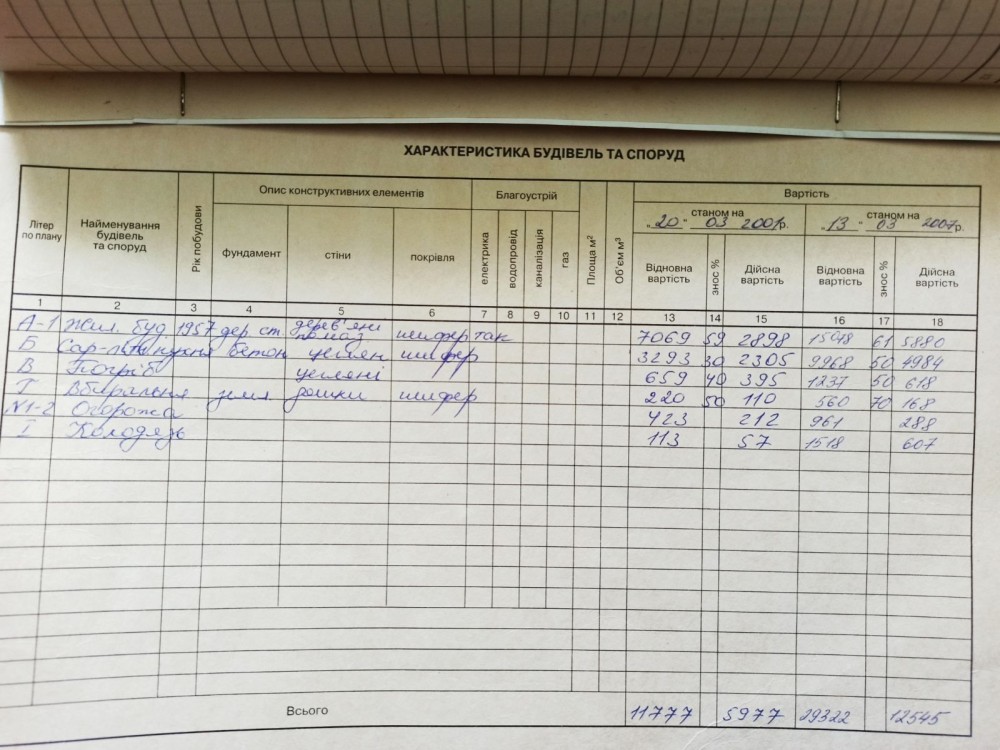 ХАРАКТЕРИСТИКА БУДІВЕЛЬ ТА СПОРУД
Літер по плану Найменування будівель та споруд Рік побудови Опис конструктивних елементів Благоустрій Площа м² Об'єм м³ Вартість
фундамент стіни покрівля електрика водопровід каналізація газ
"20" 03 2001р. станом на "13" 03 2007р. станом на
Відновна вартість знос % Дійсна вартість Відновна вартість знос % Дійсна вартість
1 2 3 4 5 6 7 8 9 10 11 12 13 14 15 16 17 18
А-1 Жил. буд 1957 дер ст дерев'яні шифер так 7069 59 2898 61 5880
Б бетон цеглян шифер 3293 30 2305 9968 50 4984
В Погріб цегляні 659 40 395 1237 50 618
Г Вбиральня земл дошки шифер 220 50 110 560 70 168
N1-2 Огорожа 423 212 961 288
I Колодязь 113 57 1518 607
Всього 11777 5977 29322 12545